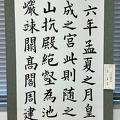 六年孟夏之月皇
成之宮此則随之
山抗殿絕壑為池
巖竦闕高閣周建